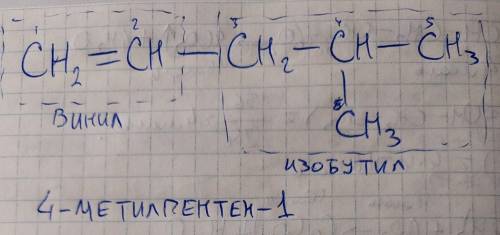 1 2 3 4 5
CH₂=CH—CH₂—CH—CH₃
CH₃
ВИНИЛ
ИЗОБУТИЛ
4-МЕТИЛПЕНТЕН-1